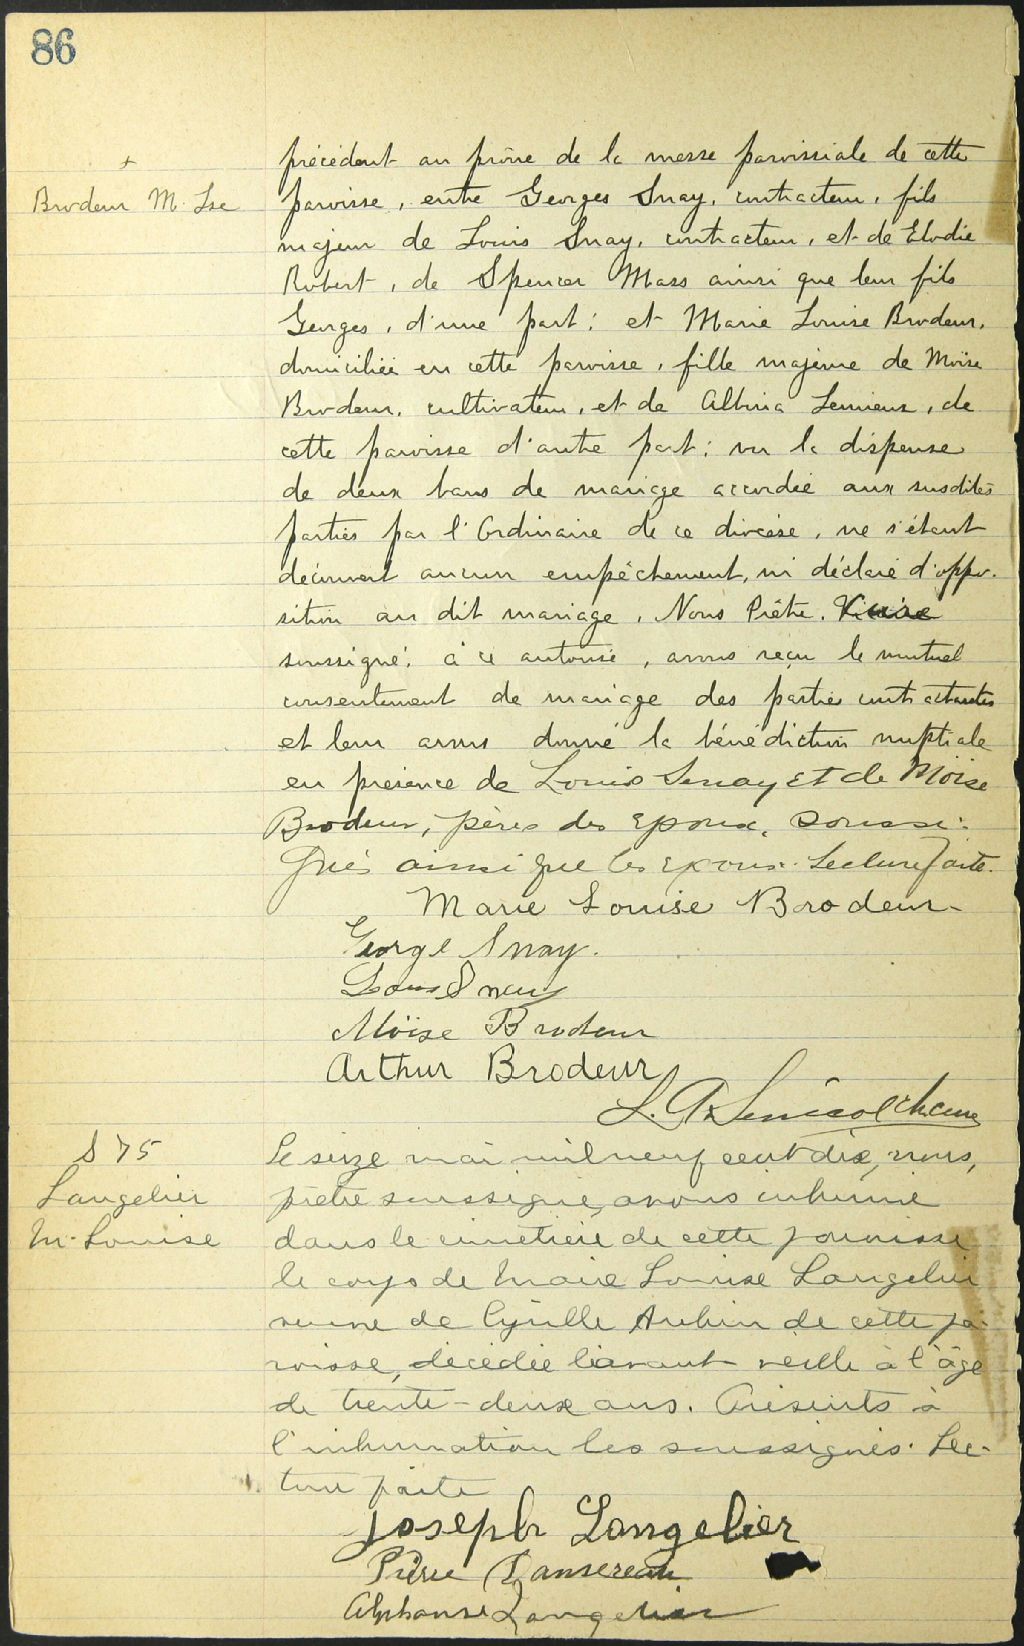 86
+
Brodeur M. Lse
précédent au prône de la messe paroissiale de cette
paroisse, entre Georges Snay, contracteur, fils
majeur de Louis Snay, contracteur, et de Elodie
Robert, de Spencer Mass ainsi que leur fils
Georges, d'une part; et Marie Louise Brodeur,
domiciliée en cette paroisse, fille majeure de Moïse
Brodeur, cultivateur, et de Albina Lemieux, de
cette paroisse d'autre part; vu la dispense
de deux bans de mariage accordée aux susdites
parties par l'Ordinaire de ce diocèse, ne s'étant
découvert aucun empêchement, ni déclaré d'oppo-
sition au dit mariage, Nous Prêtre, Vicaire
soussigné, à ce autorisé, avons reçu le mutuel
consentement de mariage des parties contractantes
et leur avons donné la bénédiction nuptiale
en présence de Louis Senay et de Moïse
Brodeur, pères des Epoux, soussi-
gnés ainsi que les époux. Lecture faite.
Marie Louise Brodeur
George Snay.
Louis Snay
Moïse Brodeur
Arthur Brodeur
L. A. Sénécal ch. cure
S 75
Langelier
M-Louise
Le seize mai mil neuf cent dix, nous,
prêtre soussigné, avons inhumé
dans le cimetière de cette paroisse
le corps de Marie Louise Langelier
veuve de Cyrille Aubin de cette pa-
roisse, décédée l'avant veille à l'âge
de trente-deux ans. Présents à
l'inhumation les soussignés. Lec-
ture faite
Joseph Langelier
Pierre Dansereau
Alphonse Langelier